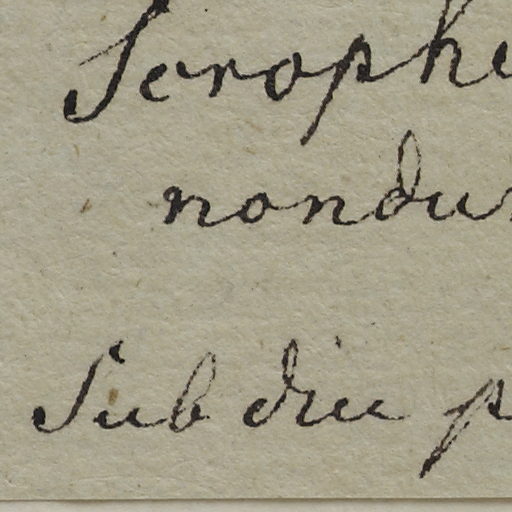 Scroph
nondu
Sub diu p